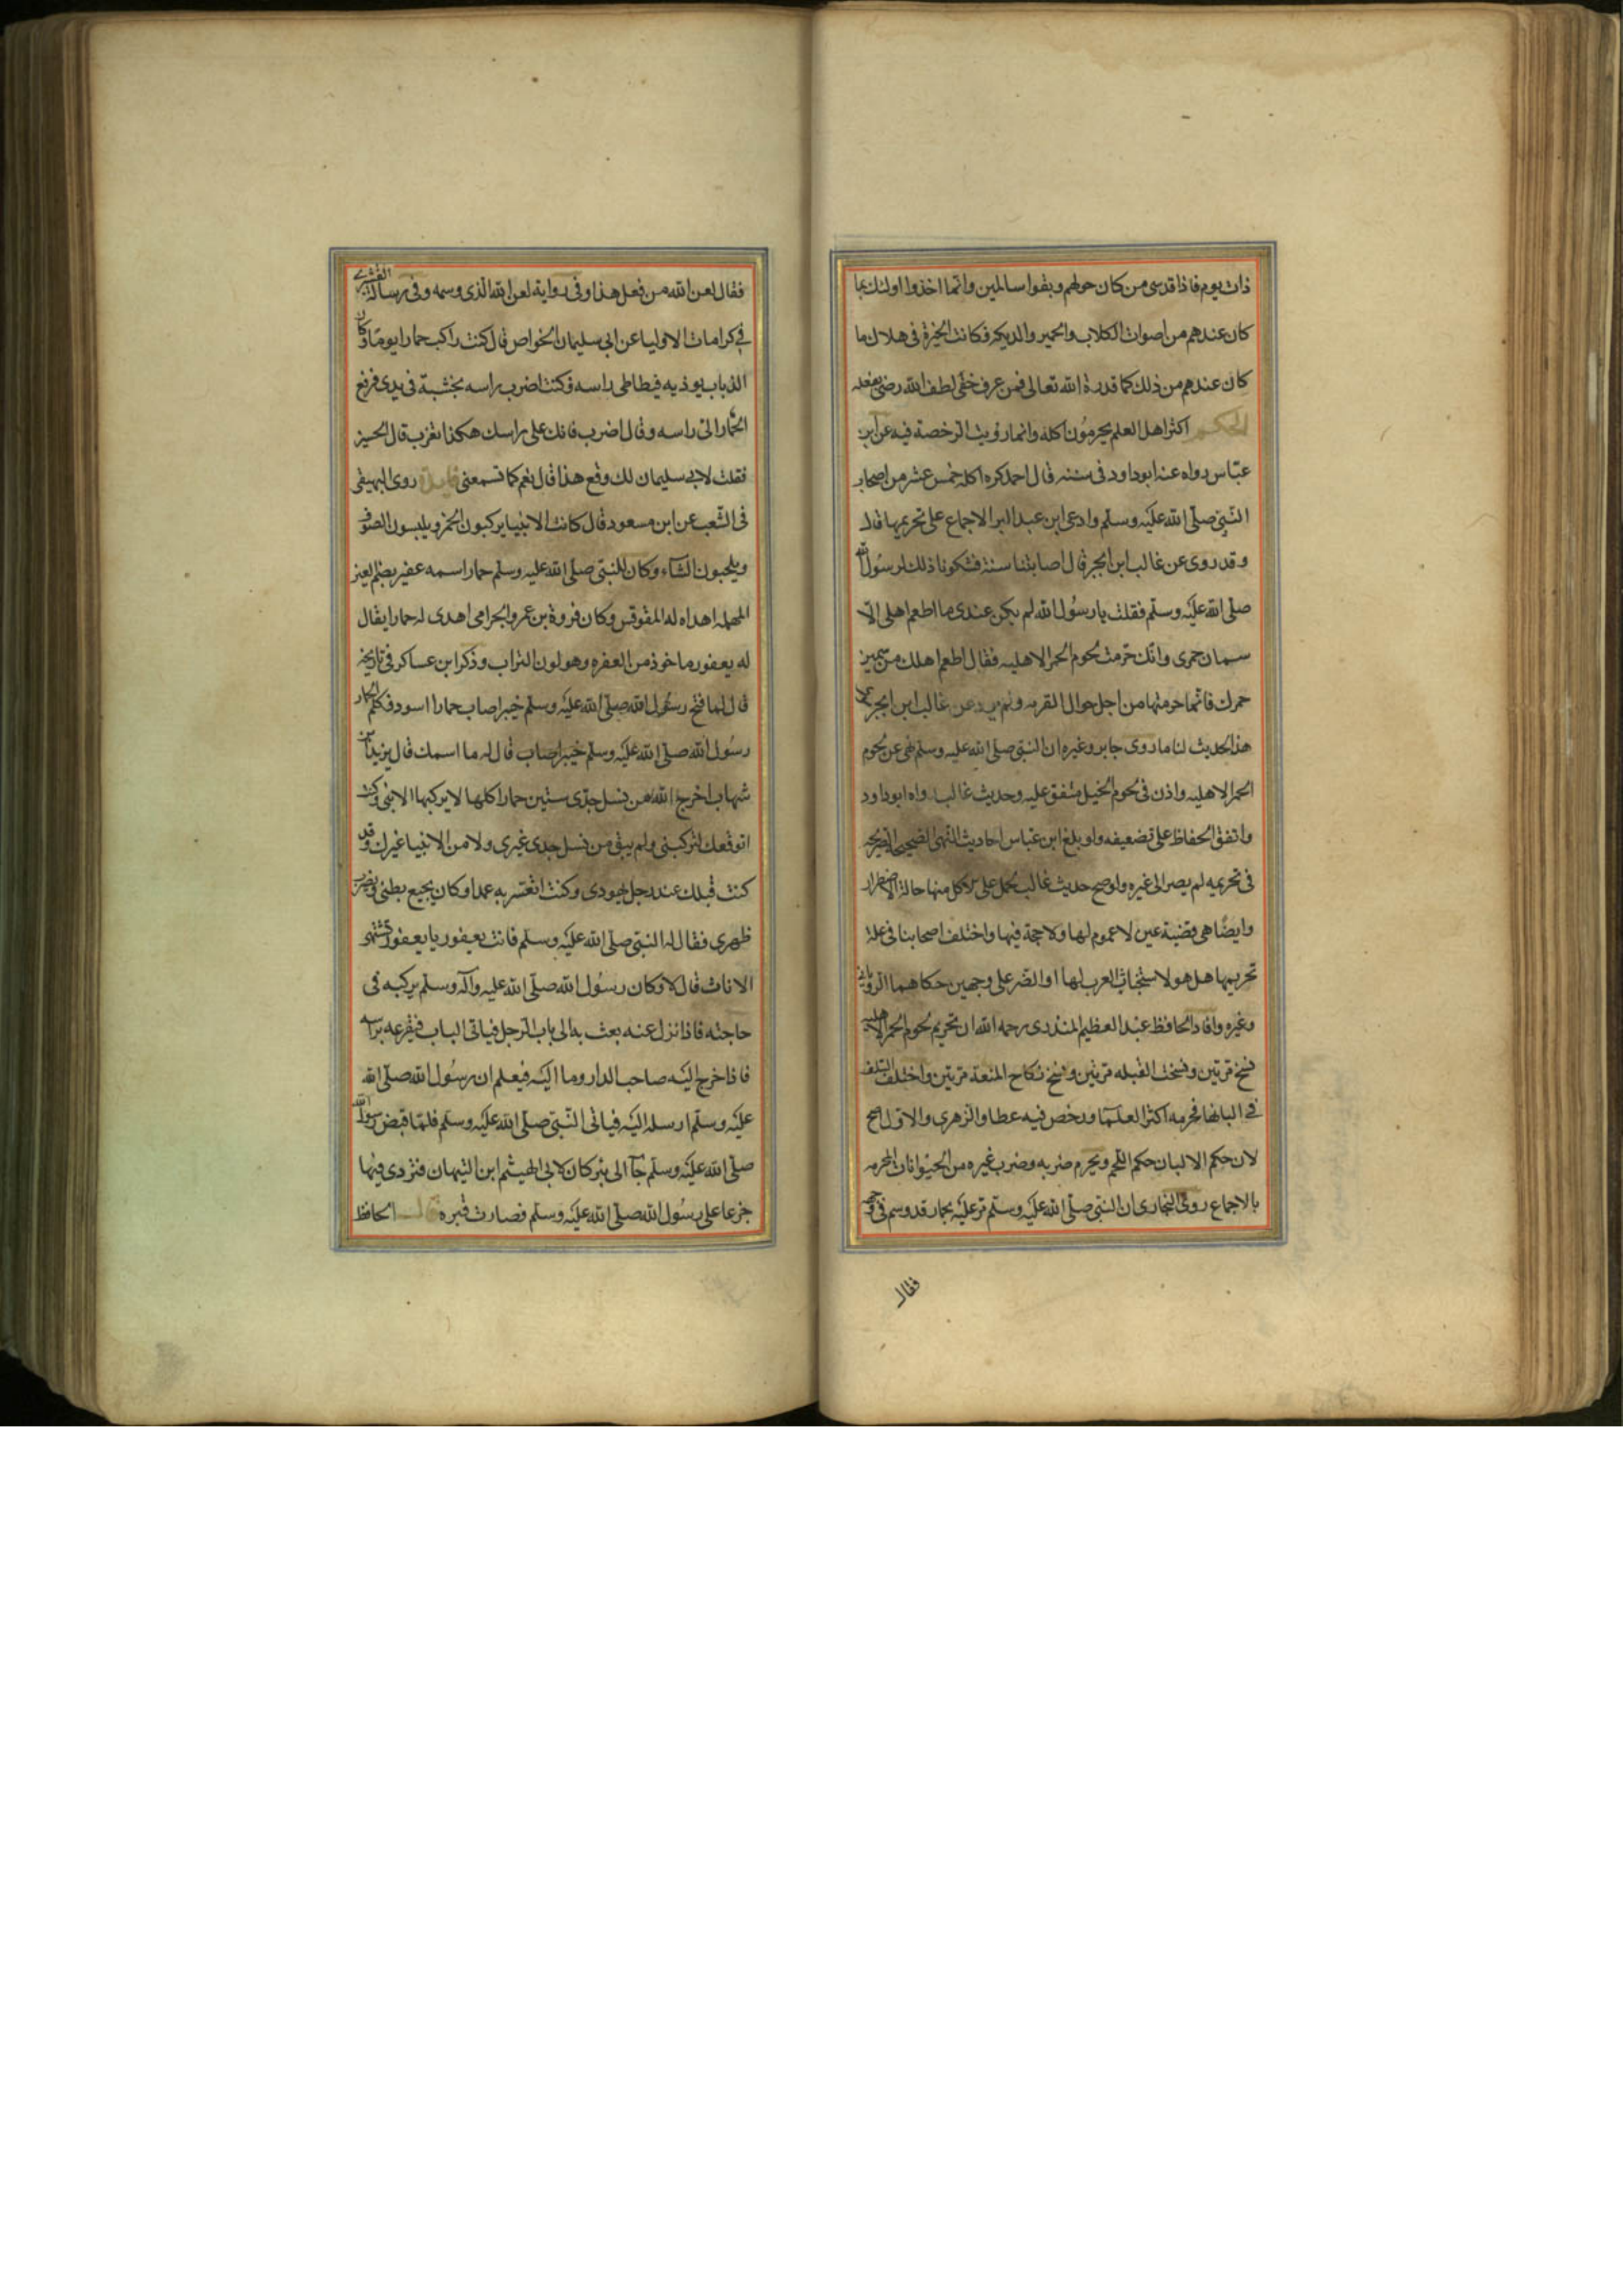 ذات يوم فاذا قد سبى من كان حولهم وبقوا سالمين وانما اخذوا اولئك بما
كان عندهم من اصوات الكلاب والحمير والديكه فكانت الخيرة فى هلاك ما
كان عندهم من ذلك كما قدره الله تعالى فمن عرف خفى لطف الله رضى بفعله
الحكم اكثر اهل العلم يحرمون اكله وانما رويت الرخصة فيه عن ابن
عباس رواه عنه ابو داود فى سننه قال احمد كره اكله خمس عشر من اصحاب
النبي صلى الله عليه وسلم وادعى ابن عبد البر الاجماع على تحريمها قال
وقد روى عن غالب ابن ابجر قال اصابتنا سنة فشكونا ذلك لرسول الله
صلى الله عليه وسلم فقلت يا رسول الله لم يكن عندى ما اطعم اهلى الا
سمان حمرى وانك حرمت لحوم الحمر الاهليه فقال اطعم اهلك من سمين
حمرك فانما حرمتها من اجل جوال القريه ولم يرو عن غالب ابن ابجر غير
هذا الحديث لنا ما روى جابر وغيره ان النبي صلى الله عليه وسلم نهى عن لحوم
الحمر الاهليه واذن فى لحوم الخيل متفق عليه وحديث غالب رواه ابو داود
واتفق الحفاظ على تضعيفه ولو بلغ ابن عباس احاديث النهى الصحيحة الصريحه
فى تحريمه لم يصر الى غيره ولو صح حديث غالب لحمل على الاكل منها حالة الاضطرار
وايضا هى قضية عين لا عموم لها ولا حجة فيها واختلف اصحابنا فى علة
تحريمها هل هو لاستخباث العرب لها او النص على وجهين حكاهما الرويانى
وغيره وافاد الحافظ عبد العظيم المنذرى رحمه الله ان تحريم لحوم الحمر الاهليه
نسخ مرتين ونسخت القبله مرتين ونسخ نكاح المتعة مرتين واختلف السلف
فى البانها فحرمه اكثر العلما ورخص فيه عطا والزهرى والاول اصح
لان حكم الالبان حكم اللحم ويحرم ضربه وضرب غيره من الحيوانات المحرمه
بالاجماع روى البخارى ان النبي صلى الله عليه وسلم مر عليه بحمار قد وسم فى وجهه
فقال
فقال لعن الله من فعل هذا وفى رواية لعن الله الذى وسمه وفى رسالة القشيرى
فى كرامات الاوليا عن ابى سليمان الخواص قال كنت راكب حمارا يوما وكان
الذباب يوذيه فيطاطى راسه فكنت اضرب راسه بخشبة فى يدى فرفع
الحمار الى راسه وقال اضرب فانك على راسك هكذا تضرب قال الحسين
فقلت لابى سليمان لك وقع هذا قال نعم كما تسمعنى فايدة روى البيهقى
فى الشعب عن ابن مسعود قال كانت الانبيا يركبون الحمر ويلبسون الصوف
ويلحبون الشاء وكان للنبي صلى الله عليه وسلم حمار اسمه عفير بضم العين
المهمله اهداه له المقوقس وكان فروة بن عمرو الجرامى اهدى له حمارا يقال
له يعفور ماخوذ من العفره وهو لون التراب وذكر ابن عساكر فى تاريخه
قال لما فتح رسول الله صلى الله عليه وسلم خيبر اصاب حمارا اسود فكلم الحمار
رسول الله صلى الله عليه وسلم خيبر اصاب قال له ما اسمك قال يزيد ابن
شهاب اخرج الله من نسل جدى ستين حمارا كلها لا يركبها الا نبى وكنت
اتوقعك لتركبنى ولم يبق من نسل جدى غيرى ولا من الانبيا غيرك وقد
كنت قبلك عند رجل يهودى وكنت اتعثر به عمدا وكان يجيع بطنى ويضرب
ظهرى فقال له النبي صلى الله عليه وسلم فانت يعفور يا يعفور تشتهى
الاناث قال لا وكان رسول الله صلى الله عليه وآله وسلم يركبه فى
حاجته فاذا نزل عنه بعث به الى باب الرجل فياتى الباب فيقرعه براسه
فاذا خرج اليه صاحب الدار وما اليه فيعلم ان رسول الله صلى الله
عليه وسلم ارسله اليه فياتى النبي صلى الله عليه وسلم فلما قبض رسول الله
صلى الله عليه وسلم جآ الى بئر كان لابى الهيثم ابن التيهان فتردى فيها
جزعا على رسول الله صلى الله عليه وسلم فصارت قبره قال الحافظ